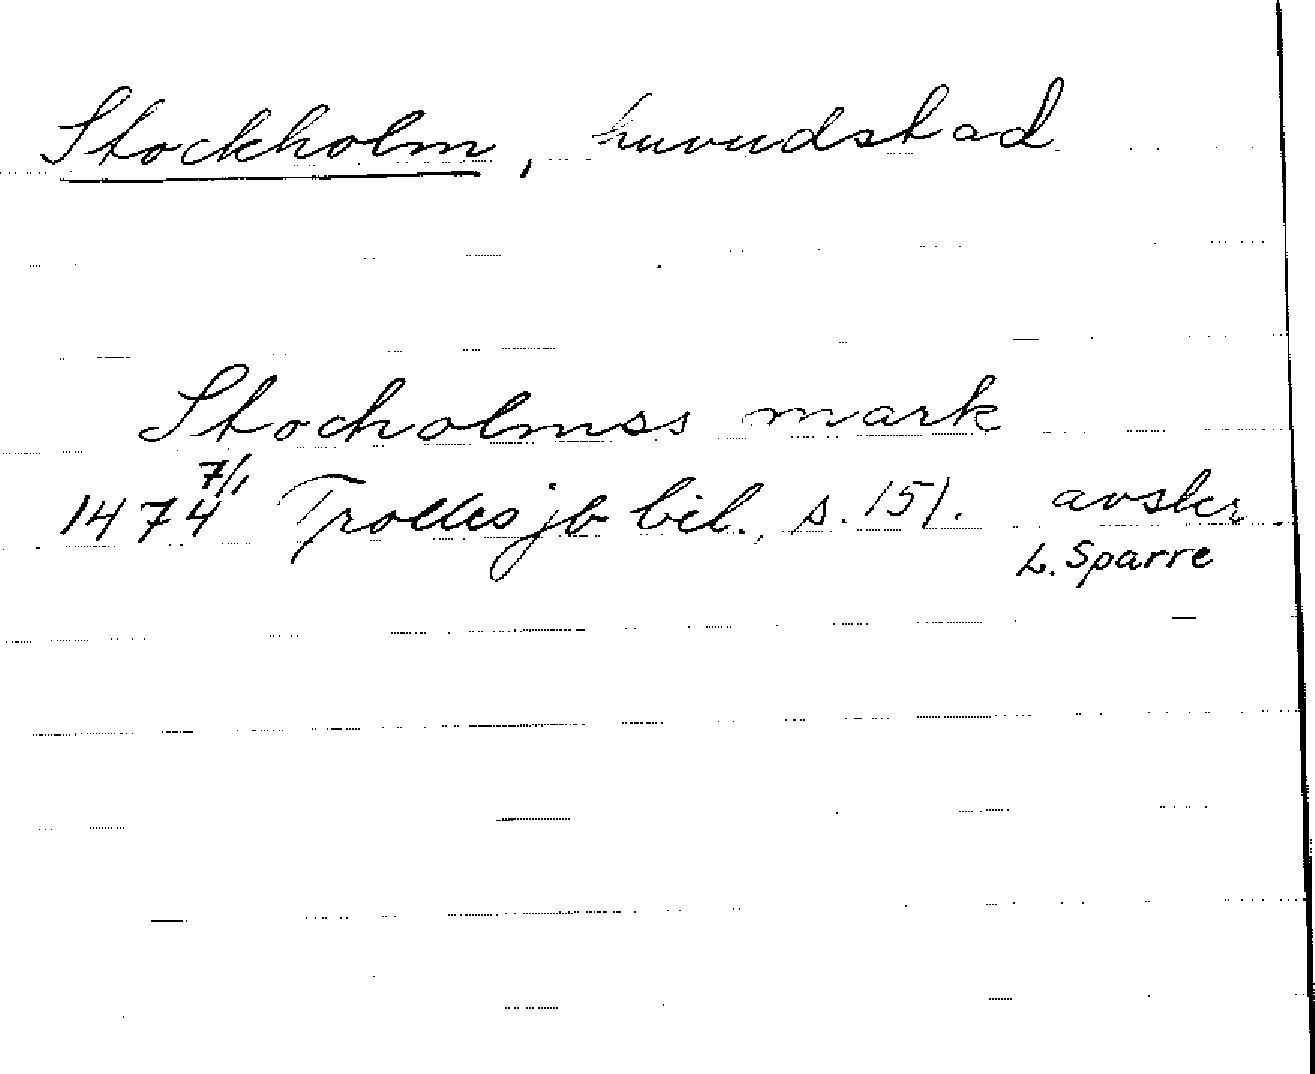 Stockholm, huvudstad
Stocholmss mark
1474 7/1 Trolles jb bil., s. 151. avskr.
L. Sparre